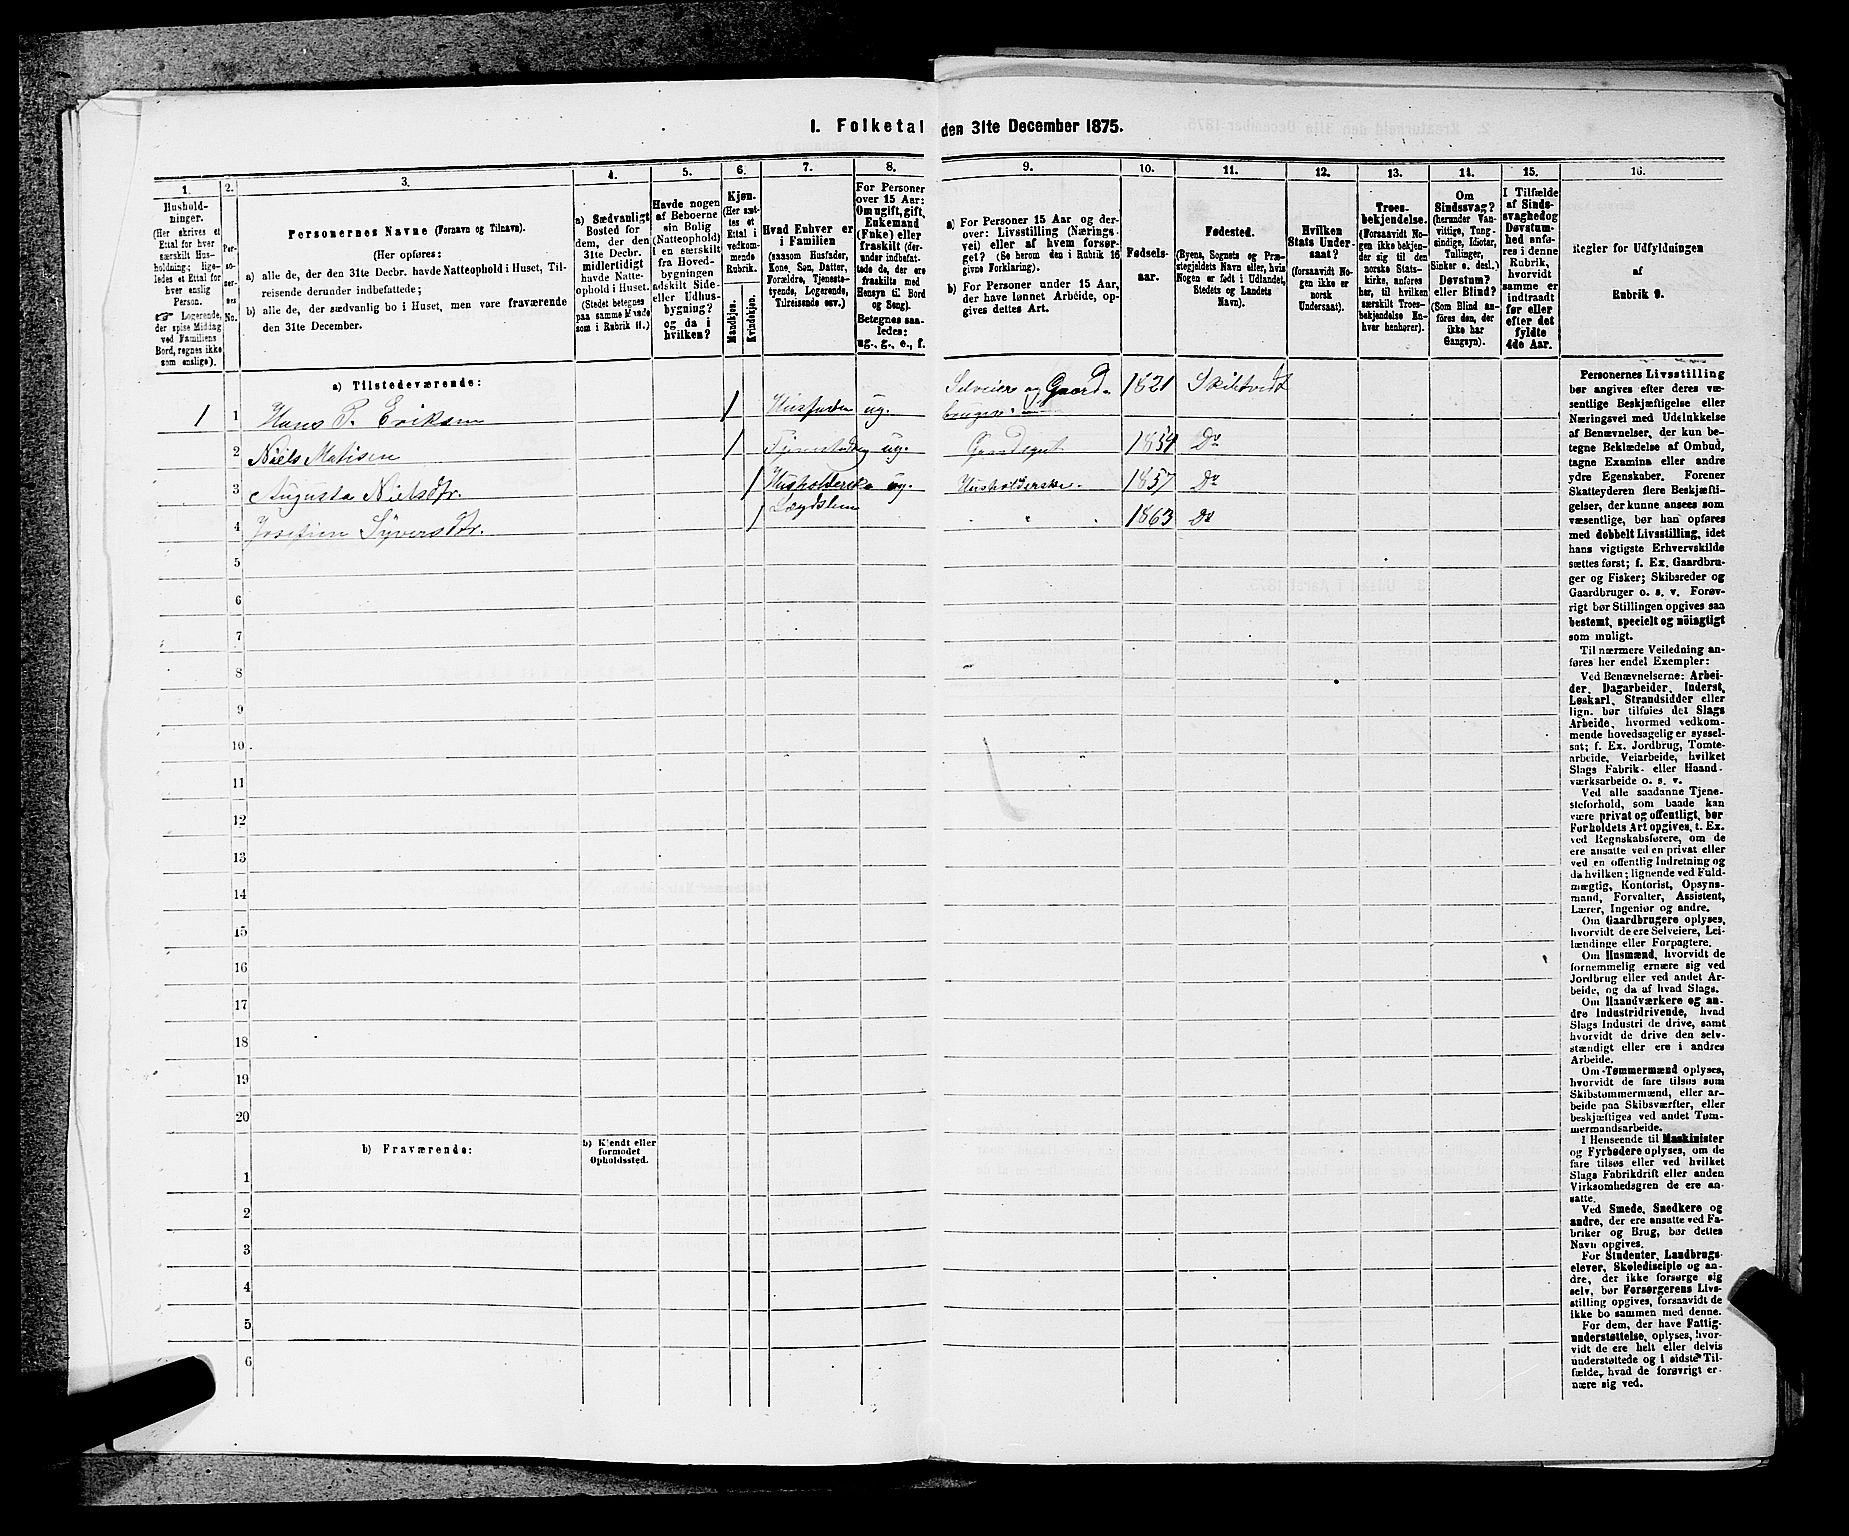 I. Folketal den 31te December 1875.
1.
Hushold-
ninger.
(Her skrives et
Ettal for hver
særskilt Hus-
holdning; lige-
ledes et Ettal for
hver enslig
Person.
☞ Logerende,
der spise Middag
ved Familiens
Bord, regnes ikke
som enslige).
2.
Per-
so-
ner-
nes
No.
3.
Personernes Navne (Fornavn og Tilnavn).
(Her opføres:
a) alle de, der den 31te Decbr. havde Natteophold i Huset, Til-
reisende derunder indbefattede;
b) alle de, der sædvanlig bo i Huset, men vare fraværende
den 31te December.
4.
a) Sædvanligt
Bosted for
dem, der den
31te Decbr.
midlertidigt
havde Natte-
ophold i Huset.
(Stedet betegnes
paa samme Maade
som i Rubrik 11.)
5.
Havde nogen
af Beboerne
sin Bolig
(Natteophold)
i en særskilt
fra Hoved-
bygningen
adskilt Side-
eller Udhus-
bygning?
og da i
hvilken?
6.
Kjøn.
(Her sæt-
tes et
Ettal i
vedkom-
mende
Rubrik.
Mandkjøn.
Kvindekjøn.
7.
Hvad Enhver er
i Familien
(saasom Husfader,
Kone, Søn, Datter,
Forældre, Tjeneste-
tyende, Logerende,
Tilreisende osv.)
8.
For Personer
over 15 Aar:
Om ugift, gift,
Enkemand
(Enke) eller
fraskilt (der-
under indbefat-
tede de, der ere
fraskilte med
Hensyn til Bord
og Seng).
Betegnes saa-
ledes:
ug., g., e., f.
9.
a) For Personer 15 Aar og der-
over: Livsstilling (Nærings-
vei) eller af hvem forsør-
get? (Se herom den i Rubik 16
givne Forklaring).
b) For Personer under 15 Aar,
der have lønnet Arbeide, op-
gives dettes Art.
10.
Fødsels-
aar.
11.
Fødested.
(Byens, Sognets og Præ-
stegjeldets Navn eller, hvis
Nogen er født i Udlandet,
Stedets og Landets
Navn).
12.
Hvilken
Stats Under-
saat?
(forsaavidt No-
gen ikke er
norsk
Undersaat).
13.
Troes-
bekjendelse.
(Forsaavidt No-
gen ikke bekjen-
der sig til den
norske Stats-
kirke, anføres
her, til hvilken
særskilt Troes-
bekjendelse En-
hver henhører).
14.
Om
Sindssvag?
(herunder Van-
vittige, Tung-
sindige, Idioter,
Tullinger,
Sinker o. desl.)
Døvstum?
eller Blind?
(Som Blind an-
føres den, der
ikke har
Gangsyn).
15.
I Tilfælde
af Sinds-
svaghed og
Døvstum-
hed anfø-
res i denne
Rubrik,
hvorvidt
samme er
indtraadt
før eller
efter det
fyldte
4de Aar.
16.
Regler for Udfyldningen
af
Rubrik 9.
a) Tilstedeværende:
1 1 Hans P. Eriksen 1 Husfader ug. Selveier og Gaard-
bruger. 1821 Skibtvedt
2 Niels Matisen 1 ug. 1859 Do
3 Augusta Nielsdtr. 1 Husholderske ug. Husholderske. 1857 Do
4 Josefien Syversdtr. 1 Lægdslem " 1863 Do
5
6
7
8
9
10
11
12
13
14
15
16
17
18
19
20
b) Fraværende:
b) Kjendt eller
formodet
Opholdssted.
1
2
3
4
5
6
Personernes Livsstilling
bør angives efter deres væ-
sentlige Beskjæftigelse eller
Næringsvei med Udelukkelse
af Benævnelser, der kun be-
tegne Beklædelse af Ombud,
tagne Examina eller andre
ydre Egenskaber. Forener
Skatteyderen flere Beskjæfti-
gelser, der kunne ansees som
væsentlige, bør han opføres
med dobbelt Livsstilling, idet
hans vigtigste Erhvervskilde
sættes først; f. Ex. Gaardbru-
ger og Fisker; Skibsreder og
Gaardbruger o. s. v. Forøv-
rigt bør Stillingen opgives saa
bestemt, specielt og nöiagtigt
som muligt.
Til nærmere Veiledning an-
føres her endel Exempler:
Ved Benævnelserne: Arbei-
der, Dagarbeider, Inderst,
Løskarl, Strandsidder eller
lign. bør tilføies det Slags
Arbeide, hvormed vedkom-
mende hovedsagelig er syssel-
sat; f. Ex. Jordbrug, Tomte-
arbeide, Veiarbeide, hvilket
Slags Fabrik- eller Haand-
værksarbeide o. s. v.
Ved alle saadanne Tjene-
steforhold, som baade kan
være privat og offentligt, bør
Forholdets Art opgives, t. Ex.
ved Regnskabsførere, om de
ere ansatte ved en privat eller
ved en offentlig Indretning og
da hvilken; lignende ved Fuld-
mægtig, Kontorist, Opsyns-
mand, Forvalter, Assistent,
Lærer, Ingeniør og andre.
Om Gaardbrugere oplyses,
hvorvidt de ere Selveiere, Lei-
lændinge eller Forpagtere.
Om Husmænd, hvorvidt de
fornemmelig ernære sig ved
Jordbrug eller ved andet Ar-
beide, og da af hvad Slags.
Om Haandværkere og an-
dre Industridrivende, hvad
Slags Industri de drive, samt
hvorvidt de drive den selv-
stændigt eller ere i andres
Arbeide.
Om Tømmermænd oplyses,
hvorvidt de fare tilsøs som
Skibstømmermænd, eller ar-
beide paa Skibsværfter, eller
beskjæftiges ved andet Tøm-
mermandsarbeide.
I Henseende til Maskinister
og Fyrbødere oplyses, om de
fare tilsøs eller ved hvilket
Slags Fabrikdrift eller anden
Virksomhedsgren de ere an-
satte.
Ved Smede, Snedkere og
andre, der ere ansatte ved Fa-
briker og Brug, bør dettes
Navn opgives.
For Studenter, Landbrugs-
elever, Skoledisciple og an-
dre, der ikke forsørge sig
selv, bør Forsørgerens Livs-
stilling opgives, forsaavidt de
ikke bo sammen med denne.
For dem, der have Fattig-
understøttelse, oplyses, hvor-
vidt de ere helt eller delvis
understøttede og i sidste Til-
fælde, hvad de forøvrigt er-
nære sig ved.